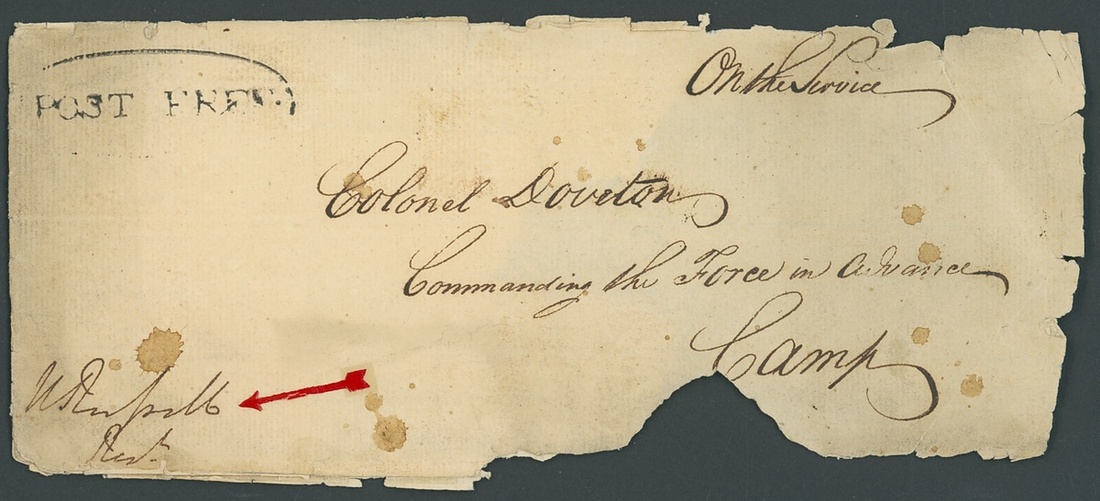 POST FREE
On the Service
Colonel Doveton
Commanding the Force in Advance
Camp
Russell
Resᵗ